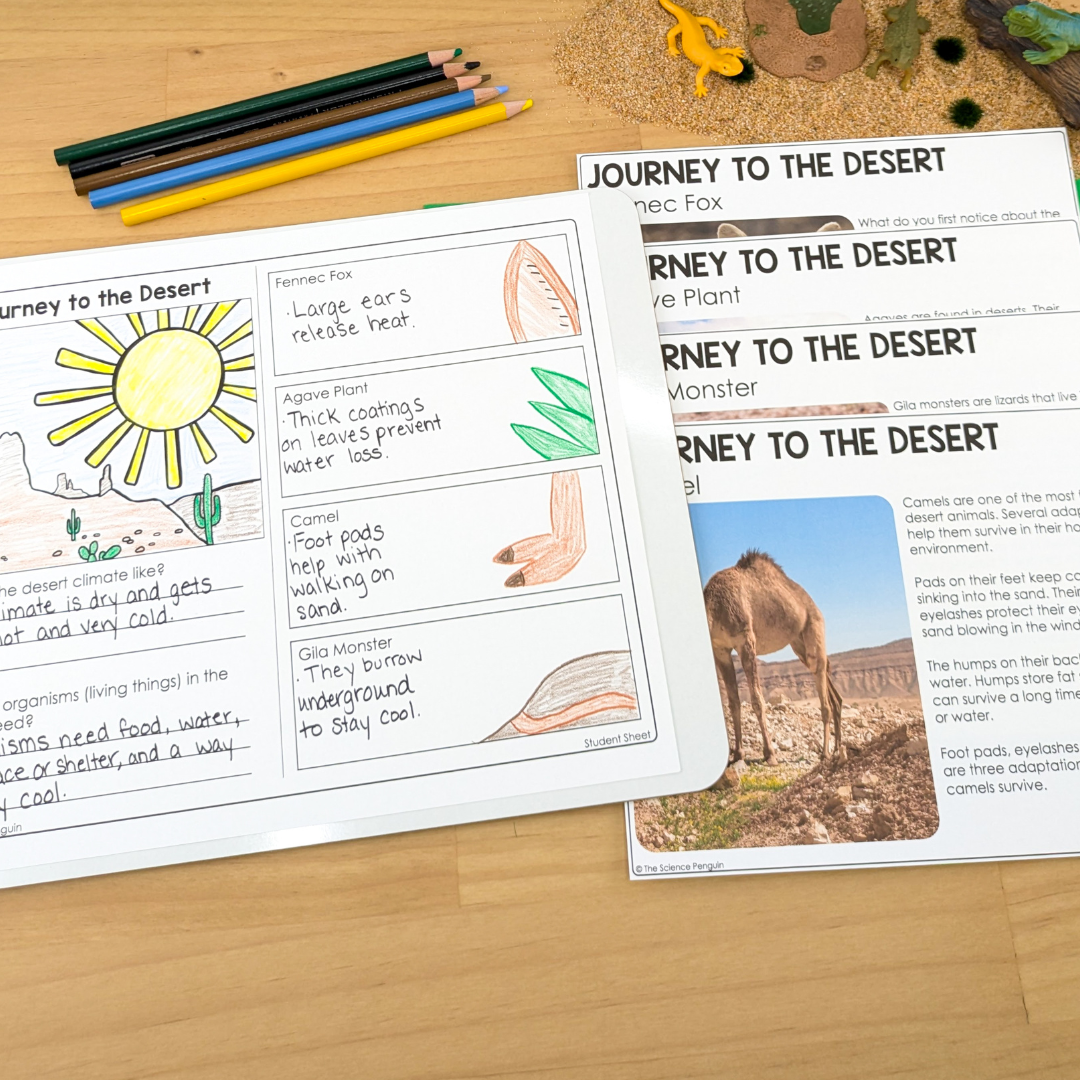 urney to the Desert
he desert climate like?
imate is dry and gets
hot and very cold.
organisms (living things) in the
eed?
isms need food, water,
ace or shelter, and a way
y cool.
guin
Fennec Fox
· Large ears
release heat.
Agave Plant
· Thick coatings
on leaves prevent
water loss.
Camel
· Foot pads
help with
walking on
sand.
Gila Monster
· They burrow
underground
to stay cool.
Student Sheet
JOURNEY TO THE DESERT
nec Fox
What do you first notice about the
RNEY TO THE DESERT
ve Plant
Agaves are found in deserts. Their
RNEY TO THE DESERT
Monster
Gila monsters are lizards that live
RNEY TO THE DESERT
el
Camels are one of the most
desert animals. Several adap
help them survive in their ho
environment.
Pads on their feet keep ca
sinking into the sand. Their
eyelashes protect their ey
sand blowing in the wind
The humps on their back
water. Humps store fat
can survive a long time
or water.
Foot pads, eyelashes
are three adaptation
camels survive.
© The Science Penguin